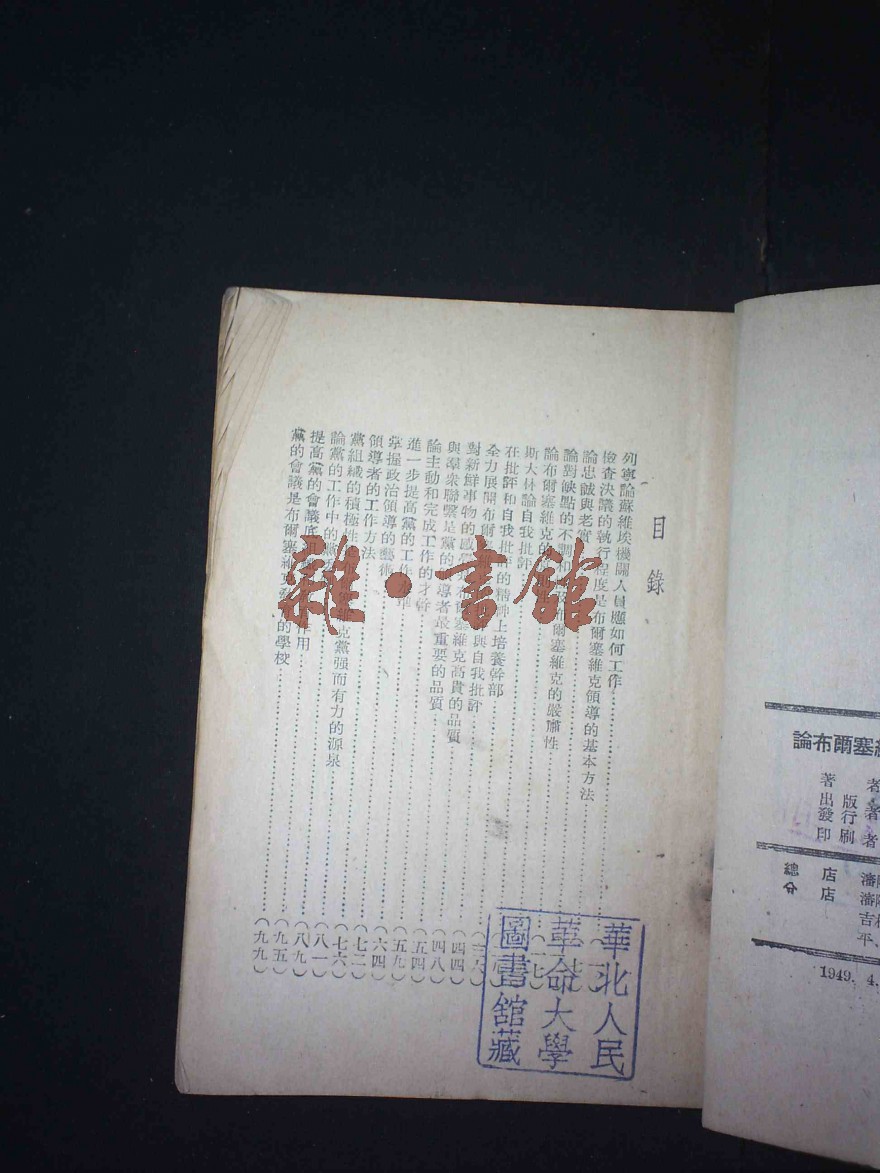 目錄
列寧論蘇維埃機關人員應如何工作
檢查決議的執行程度是布爾塞維克領導的基本方法
論忠誠與老實
論對缺點的不調和 布爾塞維克的嚴肅性
論布爾塞維克的
斯大林論自我批評
在批評和自我批評的精神上培養幹部
全力展開布爾 與自我批評（三六）
對新鮮事物的感 布爾塞維克高貴的品質（四四）
與羣衆聯繫是黨的領導者最重要的品質（四八）
論主動和完成工作的才幹（五四）
進一步提高黨的工作水平（五九）
掌握政治領導的藝術（六四）
領導者的工作方法（七二）
黨組織的積極性 塞維克黨强而有力的源泉（七六）
論黨的工作中的（八一）
提高黨的會議底 作用（八九）
黨的會議是布爾塞維克 的學校（九五）
（九九）
雜·書館
華北人民
革命大學
圖書館藏
論布爾塞維
著者
出版者
發行者
印刷者
總店 瀋陽
分店 瀋陽
吉林
平、
1949. 4.